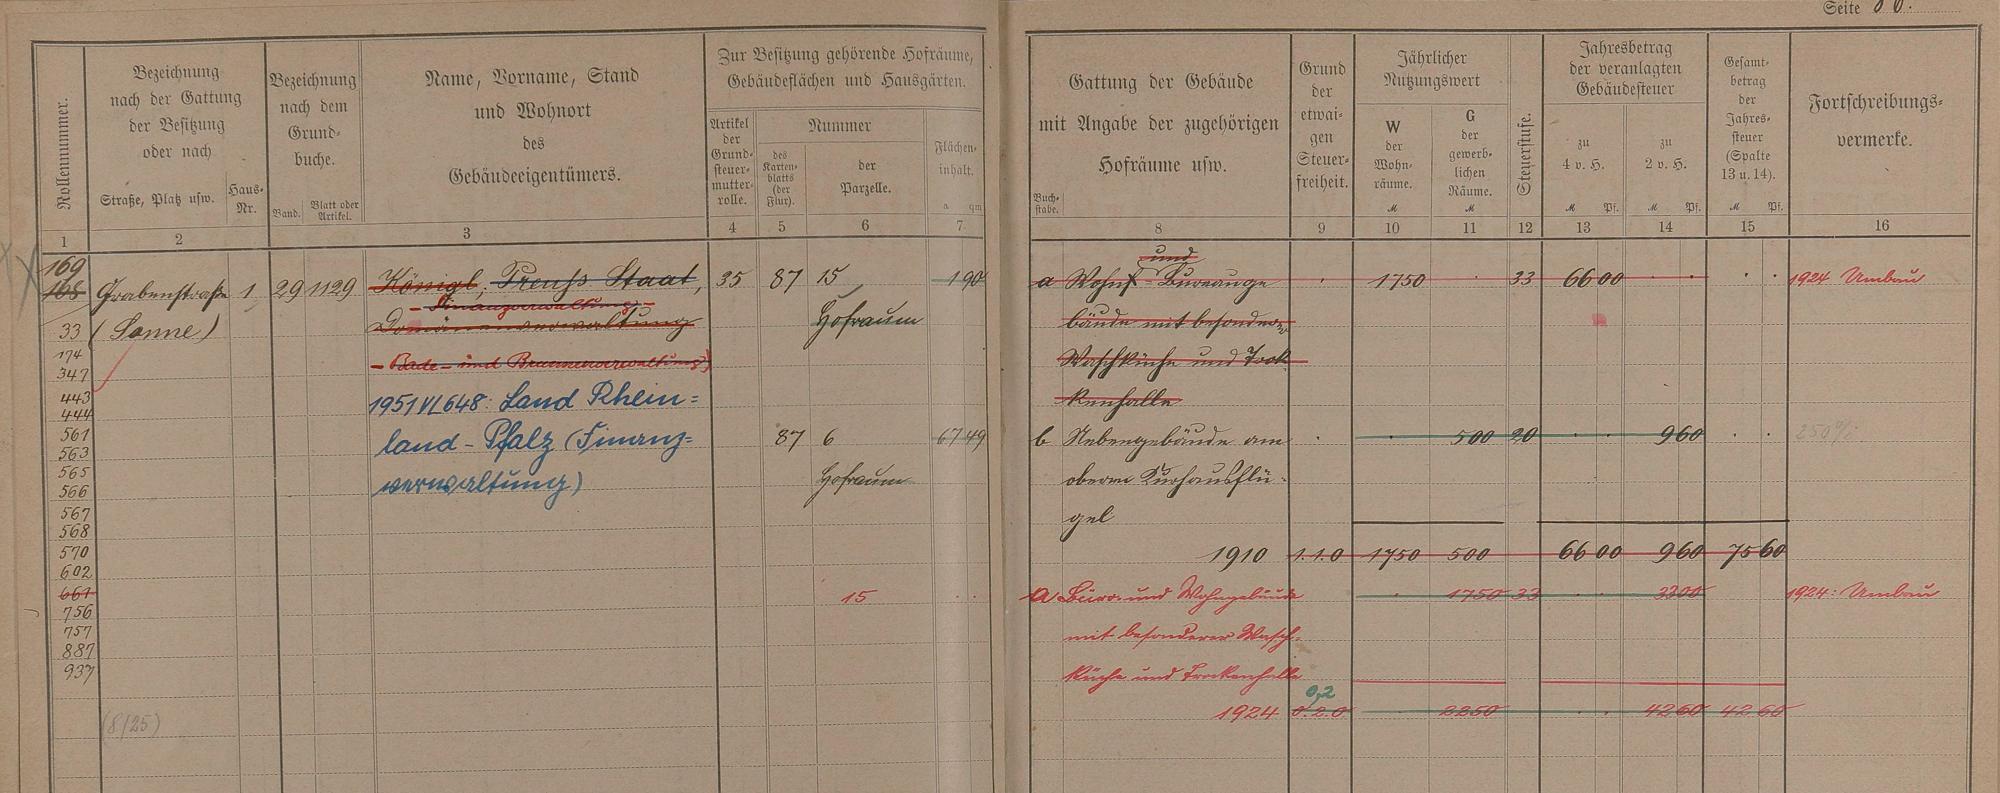 Seite 86.
Rollennummer.
Bezeichnung
nach der Gattung
der Besitzung
oder nach
Straße, Platz usw.
Haus-
Nr.
Bezeichnung
nach dem
Grund-
buche.
Band.
Blatt oder
Artikel.
Name, Vorname, Stand
und Wohnort
des
Gebäudeeigentümers.
Zur Besitzung gehörende Hofräume,
Gebäudeflächen und Hausgärten.
Artikel
der
Grund-
steuer-
mutter-
rolle.
Nummer
des
Karten-
blatts
(der
Flur).
der
Parzelle.
Flächen-
inhalt.
a qm
Buch-
stabe.
Gattung der Gebäude
mit Angabe der zugehörigen
Hofräume usw.
Grund
der
etwai-
gen
Steuer-
freiheit.
Jährlicher
Nutzungswert
W
der
Wohn-
räume.
M
G
der
gewerb-
lichen
Räume.
M
Steuerstufe.
Jahresbetrag
der veranlagten
Gebäudesteuer
zu
4 v. H.
M Pf.
zu
2 v. H.
M Pf.
Gesamt-
betrag
der
Jahres-
steuer
(Spalte
13 u. 14).
M Pf.
Fortschreibungs-
vermerke.
1 2 3 4 5 6 7 8 9 10 11 12 13 14 15 16
169
168
33
174
347
443
444
561
563
565
566
567
568
570
602
661
756
757
887
937
Grabenstraße 1
(Sonne)
(8/25)
29 1129
Königl. Preuß Staat,
- Finanzverwaltung -
Domänenverwaltung
- Bade- und Brunnenverwaltung)
1951 VI 648: Land Rhein=
land-Pfalz (Finanz=
verwaltung)
35 87 15 1 90
Hofraum
87 6 67 49
Hofraum
15
und
a Wohn- Bureauge
bäude mit besonderer
Waschküche und Trok
kenhalle
1750 33 66 00
1924 Umbau
b Nebengebäude am
oberen Kurhausflü-
gel
500 20 9 60
1910 1.1.0 1750 500 66 00 9 60 75 60
a Büro- und Wohngebäude
mit besonderer Wasch-
küche und Trockenhalle
1750 33 33 00
1924: Umbau
0,2
1924 0.2.0 2250 42 60 42 60